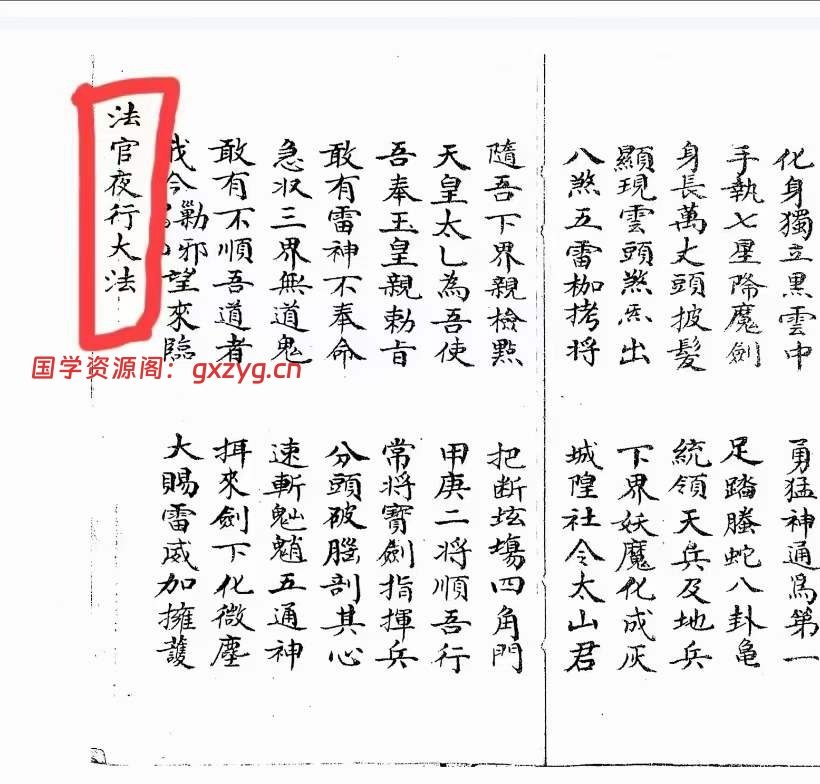 化身獨立黑雲中　勇猛神通為第一
手執七星降魔劍　足踏螣蛇八卦龜
身長萬丈頭披髮　統領天兵及地兵
顯現雲頭煞炁出　下界妖魔化成灰
八煞五雷枷拷將　城隍社令太山君
隨吾下界親檢點　把断坛場四角門
天皇太乚為吾使　甲庚二將順吾行
吾奉玉皇親勅旨　常將寶劍指揮兵
敢有雷神不奉命　分頭破腦剖其心
急収三界無道鬼　速斬魈五通神
敢有不順吾道者　來劍下化微塵
我今邪望來臨　大賜雷威加擁護
法官夜行大法
国学资源阁：gxzyg.cn